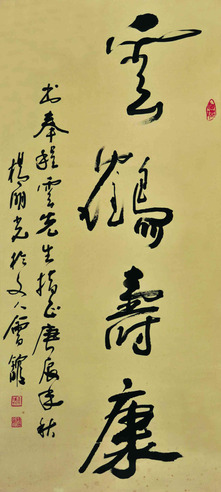 雲鶴壽康
书奉程雲先生指正庚辰年秋
楊光於文人館